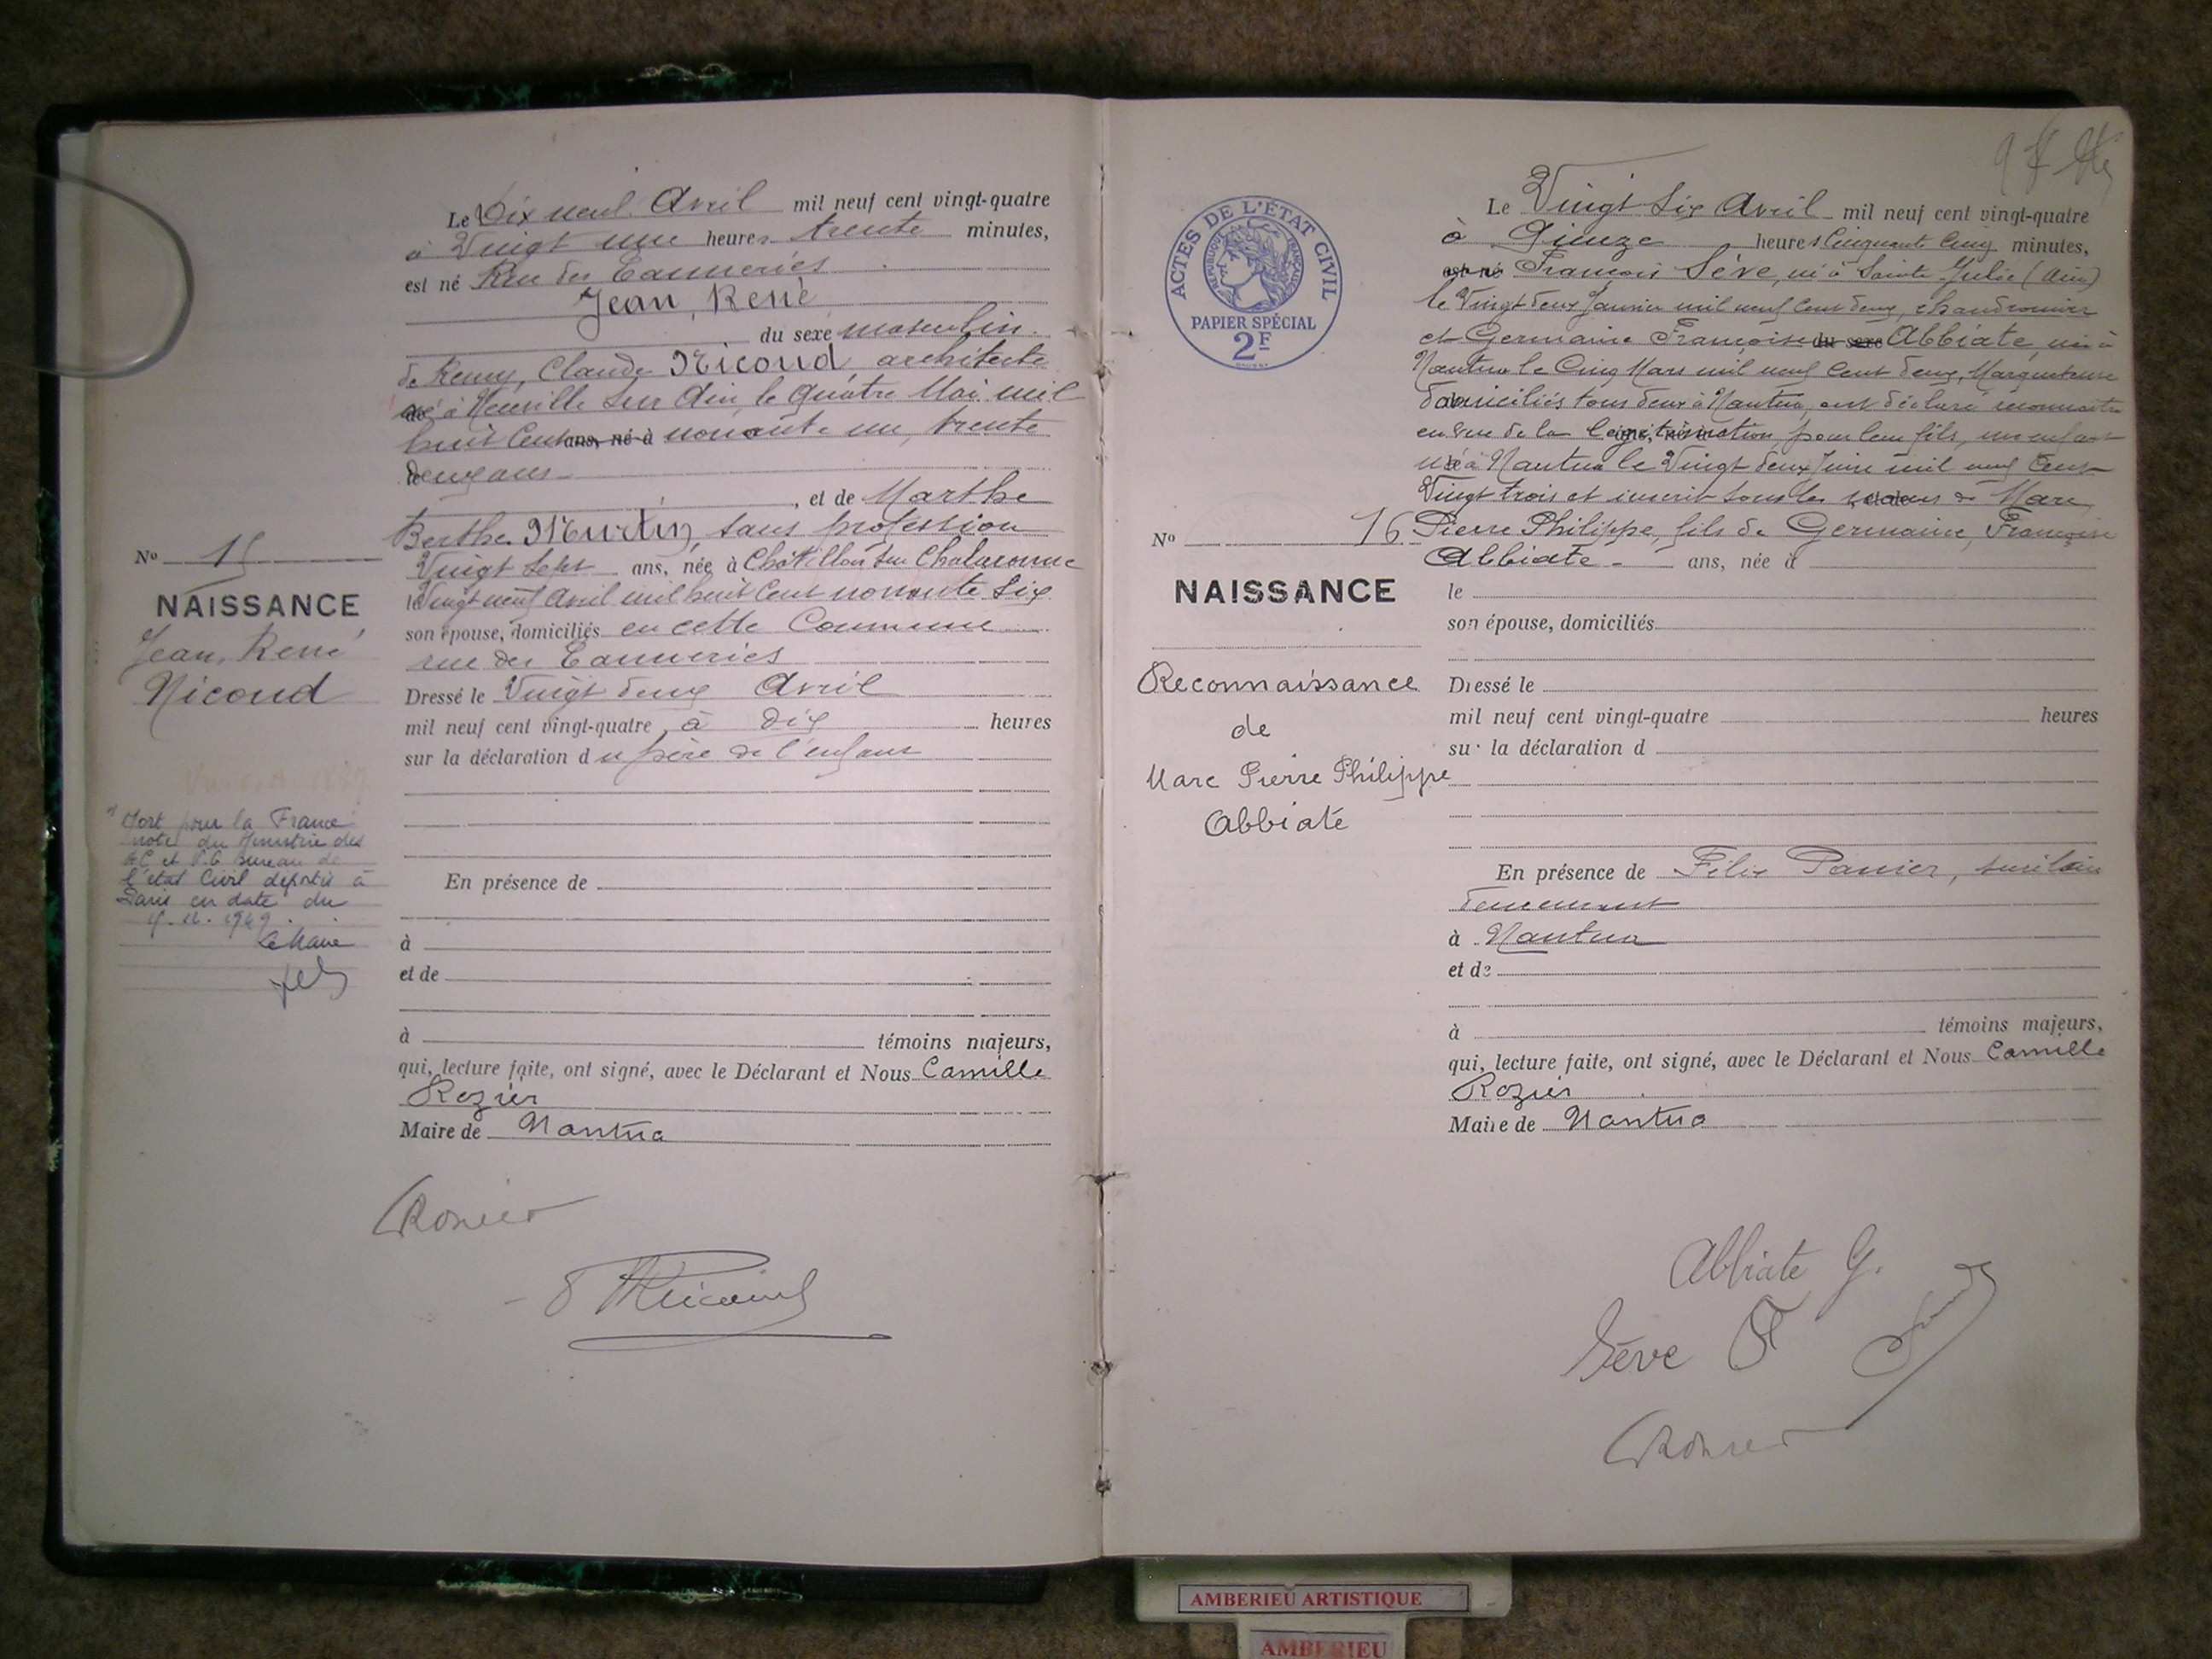 Le Dix neuf Avril mil neuf cent vingt-quatre
à Vingt une heures trente minutes,
est né Rue des Tanneries
Jean, René
du sexe masculin
de Remy, Claude Nicoud architecte
né à Neuville sur Ain, le quatre Mai mil
huit Cent ans, né à nonante un, trente
deux ans
, et de Marthe
Berthe Murtin, sans profession
Vingt sept ans, née à Châtillon sur Chalaronne
le Vingt neuf avril mil huit Cent nonante Six
son épouse, domiciliés en cette Commune
rue des Tanneries
Dressé le Vingt deux Avril
mil neuf cent vingt-quatre, à dix heures
sur la déclaration du père de l'enfant
En présence de
à
et de
à témoins majeurs,
qui, lecture faite, ont signé, avec le Déclarant et Nous Camille
Rozier
Maire de Nantua
No 15
NAISSANCE
Jean, René
Nicoud
Mort pour la France
note du Ministère des
AC et V.G bureau de
l'état Civil déportés à
Paris en date du
1949
Le Maire
Rozier
Nicoud
Le Vingt Six Avril mil neuf cent vingt-quatre
à Quinze heures Cinquante Cinq minutes,
est né François Sève, né à Sainte Julie (Ain)
le Vingt deux Janvier mil neuf Cent deux, chaudronnier
et Germaine Françoise du sexe Abbiate, née à
Nantua le Cinq Mars mil neuf Cent deux, Marqueteuse
domiciliés tous deux à Nantua, ont déclaré reconnaître
en vue de la légitimation, pour leur fils, un enfant
né à Nantua le Vingt deux Juin mil neuf Cent
Vingt trois et inscrit sous les noms de Marc
Pierre Philippe, fils de Germaine, Françoise
Abbiate - ans, née à
le
son épouse, domiciliés
Dressé le
mil neuf cent vingt-quatre heures
sur la déclaration d
En présence de Félix Panier,
à Nantua
et de
à témoins majeurs,
qui, lecture faite, ont signé, avec le Déclarant et Nous Camille
Rozier
Maire de Nantua
ACTES DE L'ÉTAT CIVIL
RÉPUBLIQUE FRANÇAISE
PAPIER SPÉCIAL
2F
No 16
NAISSANCE
Reconnaissance
de
Marc Pierre Philippe
Abbiate
Abbiate G.
Sève F
Rozier
AMBERIEU ARTISTIQUE
AMBERIEU